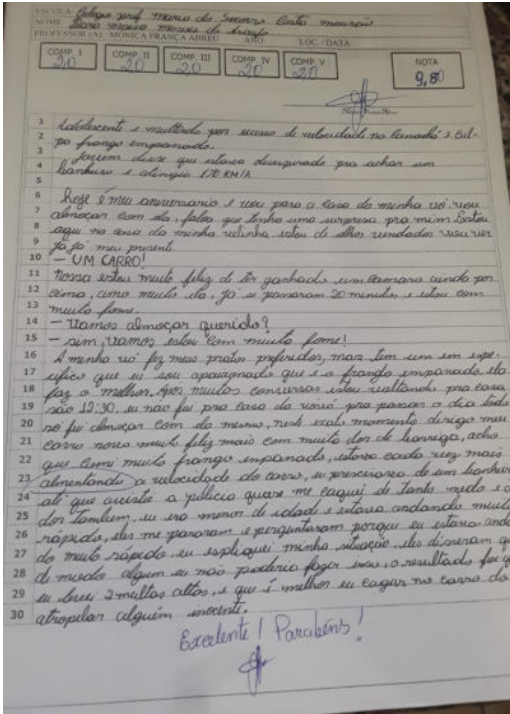 ESCOLA Colegio prof maria do Socorro Costa mourão
NOME maria
PROFESSOR (A) MÔNICA FRANÇA ABREU ANO LOC / DATA
COMP. I 20 COMP. II 20 COMP. III 20 COMP. IV 20 COMP. V 20 NOTA 9,80
1 Adolescente é multado por de velocidade no Camarô e cul-
2 pa frango empanado.
3 Jovem disse que estava desesperado pra achar um
4 banheiro e atingiu 170 KM/h
5
6 Hoje é meu aniversario e vou para a casa da minha vó, vou
7 almoçar com ela, falou que tenho uma surpresa pra mim. Estou
8 aqui na casa da minha velinha, estou de olhos vendados vou ver
9 já já meu presente.
10 — UM CARRO!
11 nossa estou muito feliz de ter ganhado um Camaro ainda por
12 cima, amo muito ela. Já se passaram 20 minutos e estou com
13 muita fome.
14 — Vamos almoçar querido?
15 — sim, vamos estou com muita fome!
16 A minha vó fez meus pratos preferidos, mas tem um em espe-
17 cifico que eu sou apaixonado que é o frango empanado. ela
18 faz o melhor. Após muitas conversas estou voltando pra casa
19 são 12:30, eu não fui pra casa da vovó pra passar o dia todo
20 só fui almoçar com ela mesmo, neste exato momento dirigo meu
21 carro novo muito feliz mais com muita dor de barriga, acho
22 que comi muito frango empanado, estava cada vez mais
23 almentando a velocidade do carro, eu precisava de um banheiro
24 até que avistei a policia quase me caguei de tanto medo e
25 dor tambem, eu era menor de idade e estava andando muito
26 rápido, eles me pararam e perguntaram porque eu estava anda
27 do muito rápido eu expliquei minha situação, eles disseram q
28 de modo algum eu não poderia fazer isso, o resultado foi q
29 eu levei 2 multas altas, e que é melhor eu cagar no carro do
30 atropelar alguém inocente.
Excelente! Parabéns!